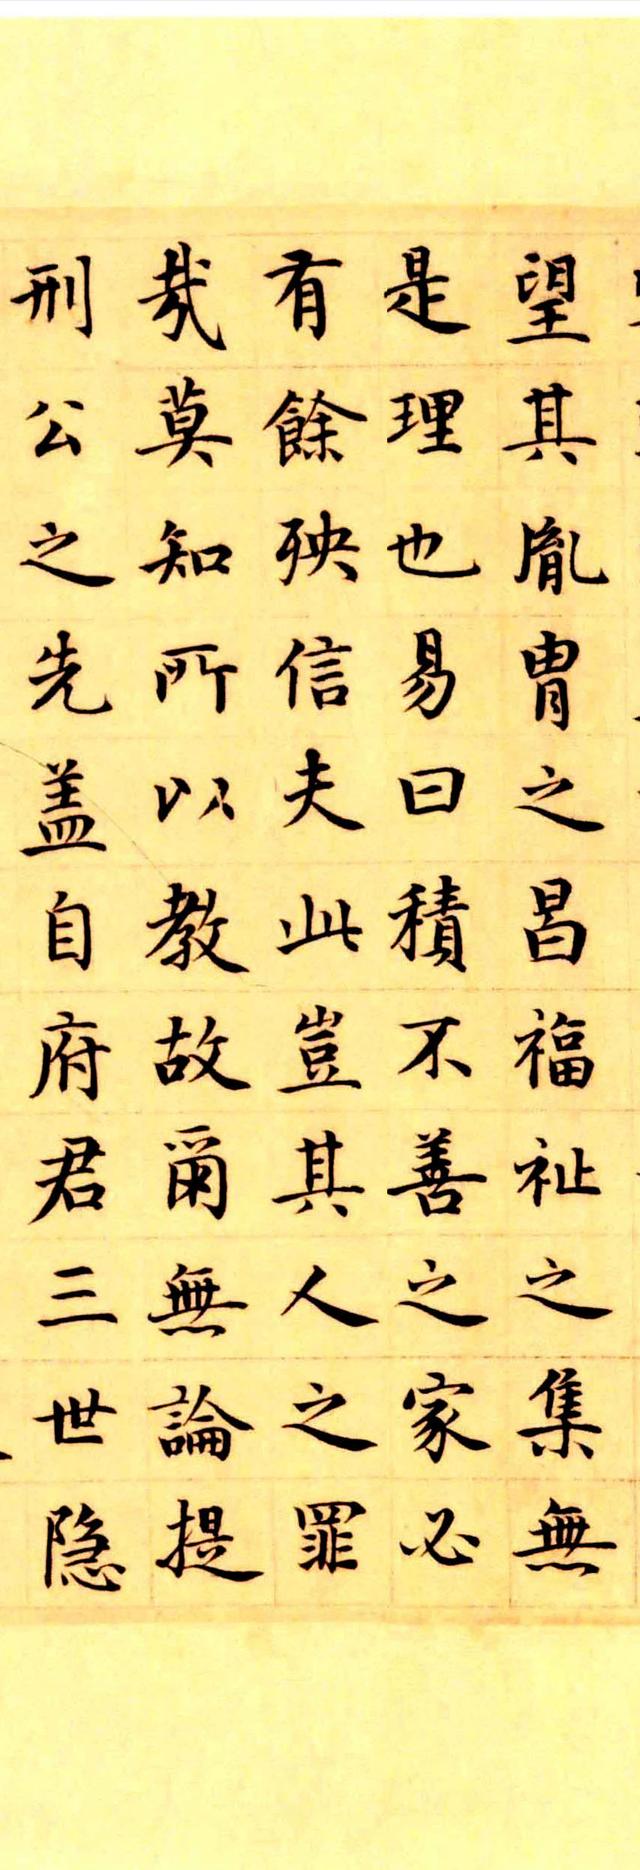 望其胤胄之昌福祉之集無
是理也易曰積不善之家必
有餘殃信夫此豈其人之罪
哉莫知所以教故爾無論提
刑公之先盖自府君三世隐